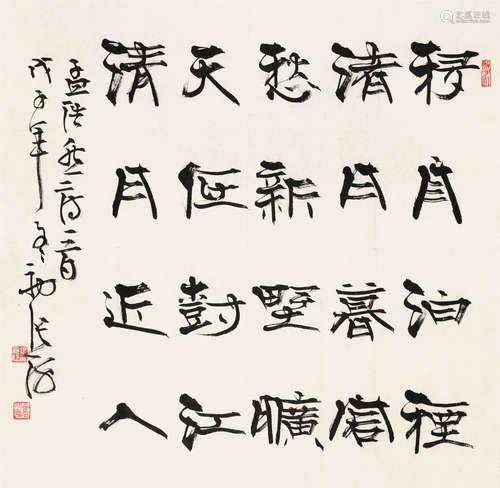 移舟泊煙
渚日暮客
愁新野曠
天低樹江
清月近人
孟浩然詩一首
戊子年